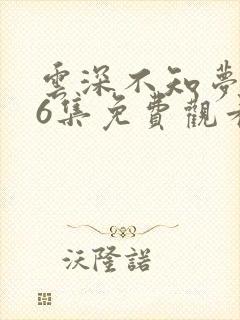 雲深不知夢
6集免費觀
沃隆諾